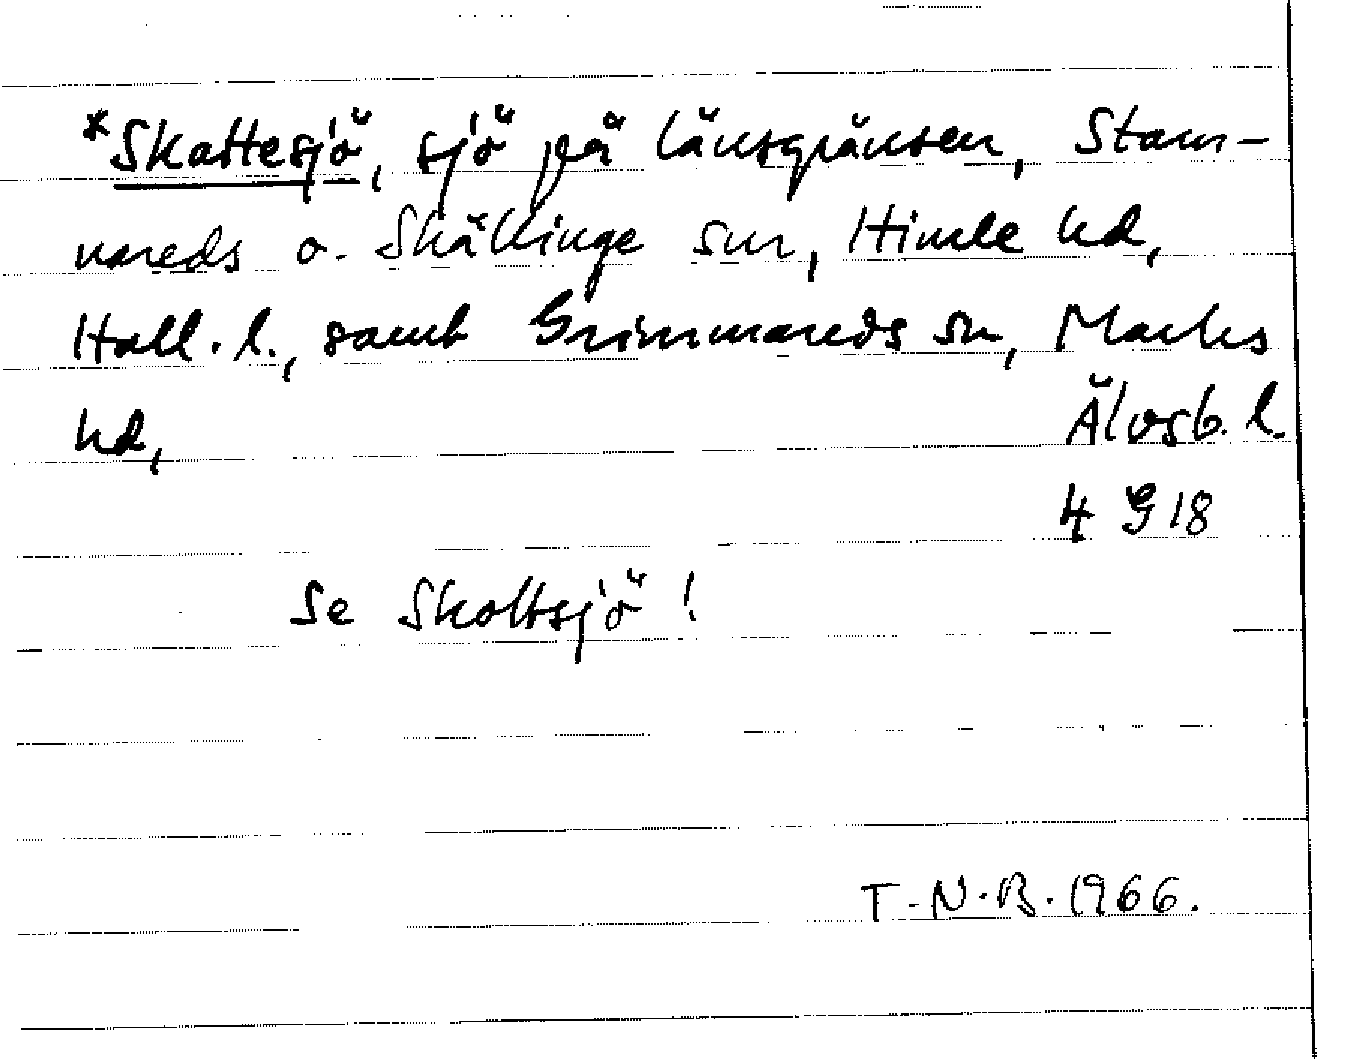 *Skattesjö, sjö på länsgränsen, Stam-
nareds o. Skällinge snr, Himle hd,
Hall. l., samt Grimmareds sn, Marks
hd, Älvsb. l.
4 G 18
Se Skottsjö!
T.N.B. 1966.